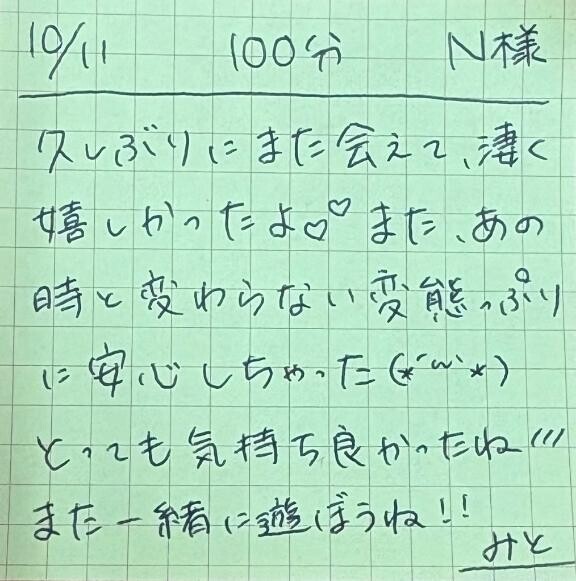 10/11 100分 N様
久しぶりにまた会えて、凄く
嬉しかったよ♡♡また、あの
時と変わらない変態っぷり
に安心しちゃった(*´ω`*)
とっても気持ち良かったね///
また一緒に遊ぼうね!!
みと